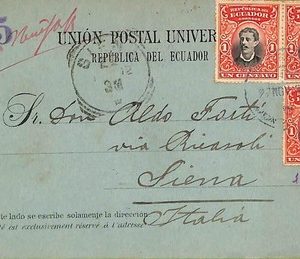 5
UNIÓN POSTAL UNIVER
REPÚBLICA DEL ECUADOR
REPUBLICA DEL
ECUADOR
1 1
UN CENTAVO
Sr. Don Aldo Forti
via Ricasoli
Siena
Italia
te lado se escribe solamente la dirección
té est exclusivement réservé à l'adresse